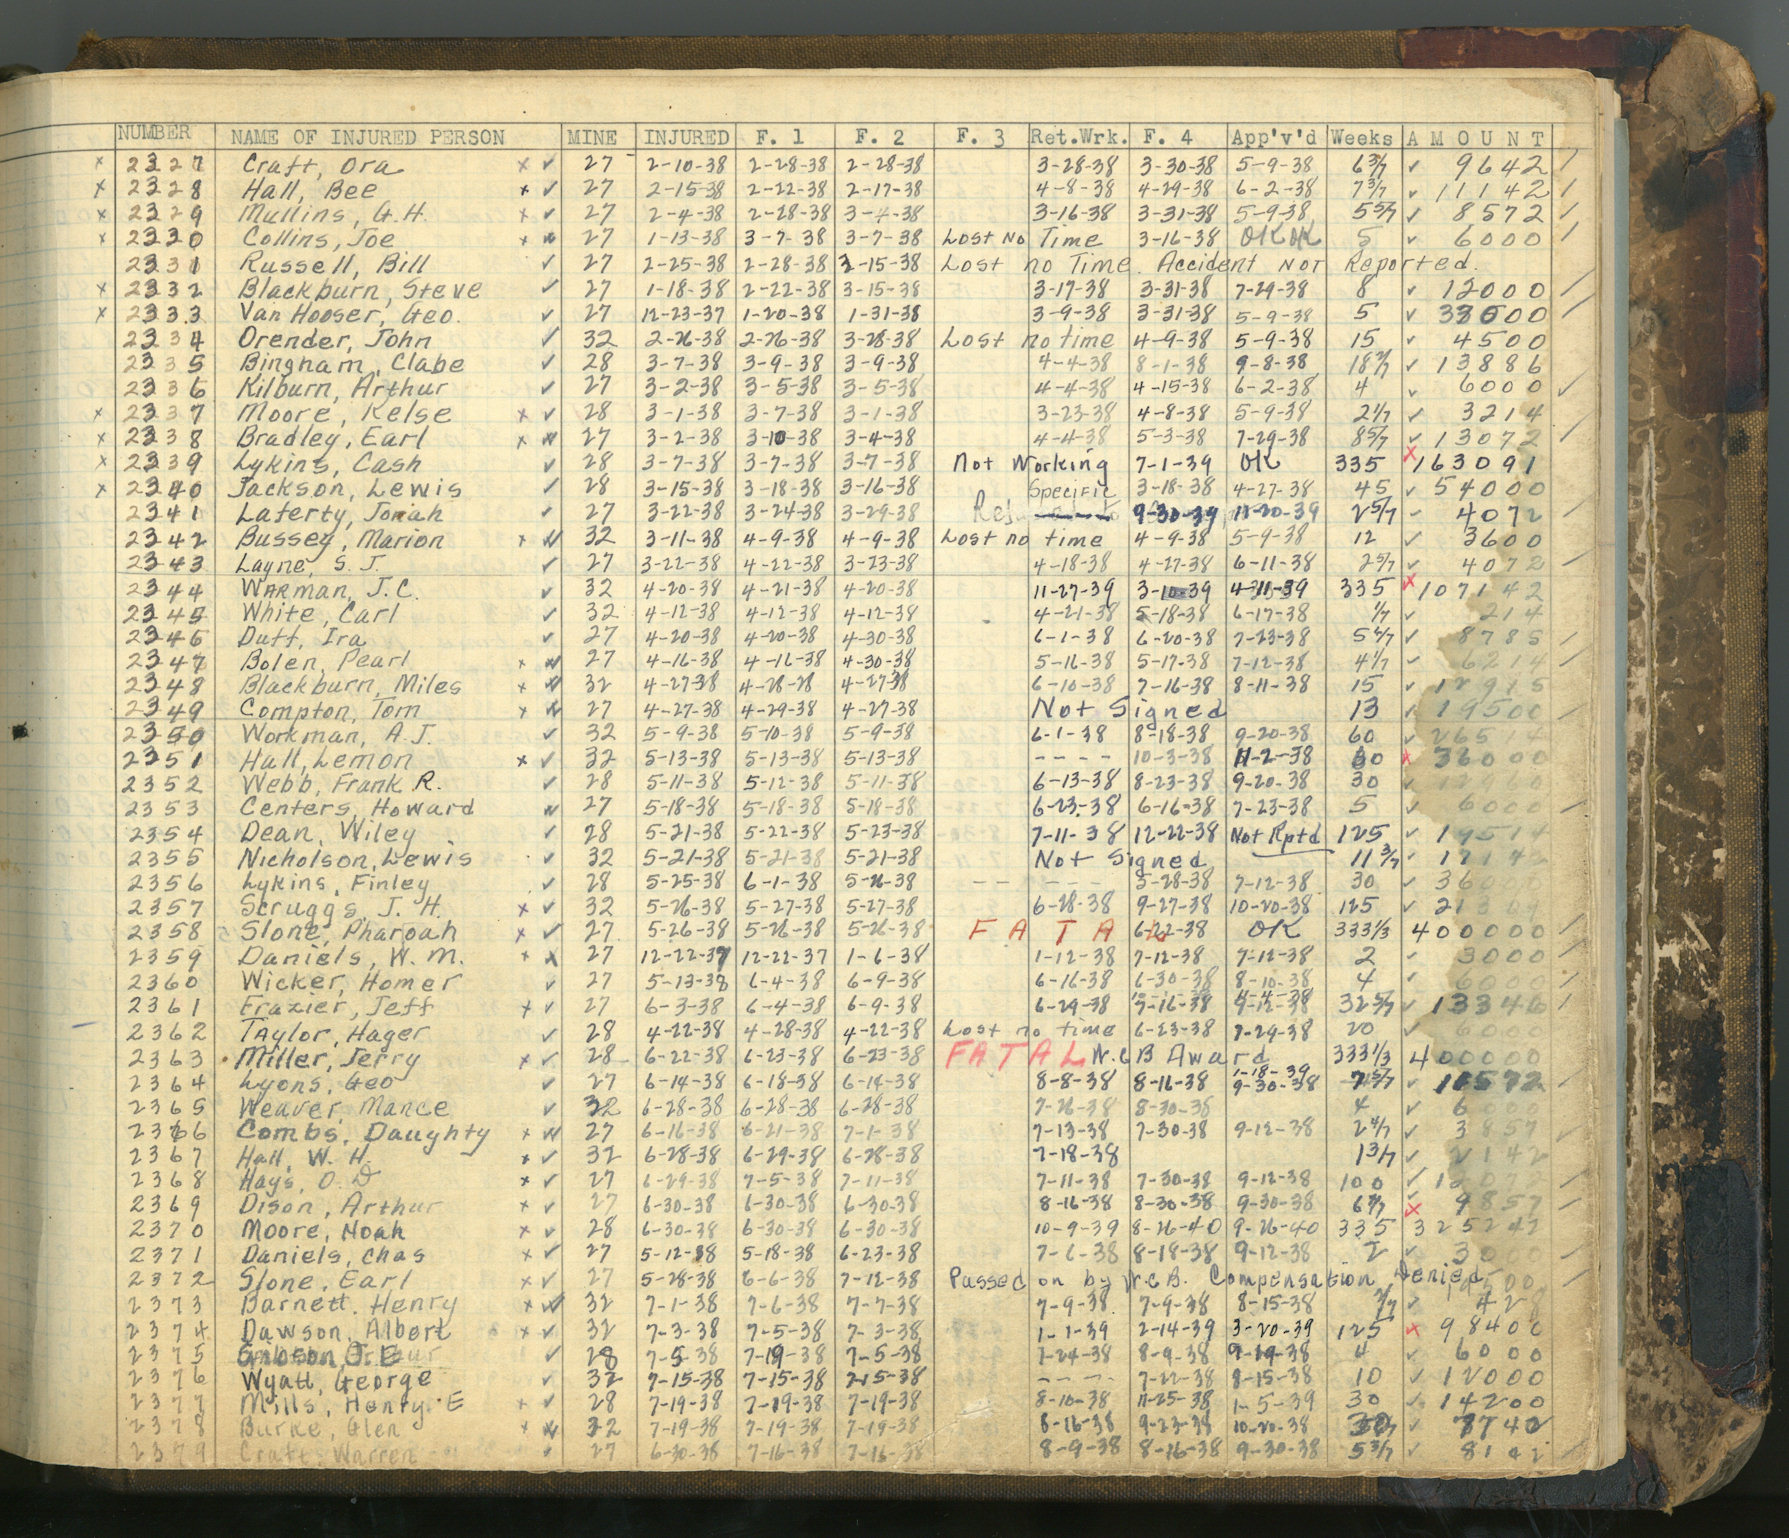 NUMBER NAME OF INJURED PERSON MINE INJURED F. 1 F. 2 F. 3 Ret.Wrk. F. 4 App'v'd Weeks AMOUNT
x 2327 Craft, Ora x ✓ 27 2-10-38 2-28-38 2-28-38 3-28-38 3-30-38 5-9-38 6 3/7 ✓ 9642 /
x 2328 Hall, Bee x ✓ 27 2-15-38 2-22-38 2-17-38 4-8-38 4-29-38 6-2-38 7 3/7 ✓ 11142 /
x 2329 Mullins, G.H. x ✓ 27 2-4-38 2-28-38 3-4-38 3-16-38 3-31-38 5-9-38 5 5/7 ✓ 8572 /
x 2330 Collins, Joe x 27 1-13-38 3-7-38 3-7-38 Lost No Time 3-16-38 OK OK 5 ✓ 6000 /
2331 Russell, Bill ✓ 27 2-25-38 2-28-38 2-15-38 Lost no Time. Accident Not Reported.
x 2332 Blackburn, Steve ✓ 27 1-18-38 2-22-38 3-15-38 3-17-38 3-31-38 7-29-38 8 ✓ 12000 /
x 2333 Van Hooser, Geo. ✓ 27 12-23-37 1-20-38 1-31-38 3-9-38 3-31-38 5-9-38 5 ✓ /
2334 Orender, John ✓ 32 2-26-38 2-26-38 3-28-38 Lost no time 4-9-38 5-9-38 15 ✓ 4500
2335 Bingham, Clabe ✓ 28 3-7-38 3-9-38 3-9-38 4-4-38 8-1-38 9-8-38 ✓ 13886
2336 Kilburn, Arthur ✓ 27 3-2-38 3-5-38 3-5-38 4-4-38 4-15-38 6-2-38 4 ✓ 6000 ✓
x 2337 Moore, Kelse x ✓ 28 3-1-38 3-7-38 3-1-38 3-23-38 4-8-38 5-9-38 2 1/7 ✓ 3214
x 2338 Bradley, Earl x 27 3-2-38 3-10-38 3-4-38 4-4-38 5-3-38 7-29-38 8 5/7 ✓ 13072 /
x 2339 Lykins, Cash ✓ 28 3-7-38 3-7-38 3-7-38 Not Working 7-1-39 OK 335 x 163091
x 2340 Jackson, Lewis ✓ 28 3-15-38 3-18-38 3-16-38 Specific 3-18-38 4-27-38 45 ✓ 54000
2341 Laferty, Jonah ✓ 27 3-22-38 3-24-38 3-29-38 9-30-39 11-20-39 2 5/7 ✓ 4072
2342 Bussey, Marion x 32 3-11-38 4-9-38 4-9-38 Lost no time 4-9-38 5-9-38 12 ✓ 3600
2343 Layne, S. J. ✓ 27 3-22-38 4-22-38 3-23-38 4-18-38 4-27-38 6-11-38 2 5/7 ✓ 4072
2344 Warman, J.C. ✓ 32 4-20-38 4-21-38 4-20-38 11-27-39 3-10-39 4-11-39 335 x 107142
2345 White, Carl ✓ 32 4-12-38 4-12-38 4-12-38 4-21-38 5-18-38 6-17-38 1/7 ✓ 214
2346 Duff, Ira ✓ 27 4-20-38 4-20-38 4-30-38 6-1-38 6-20-38 7-23-38 ✓ 8785
2347 Bolen, Pearl x 27 4-16-38 4-16-38 4-30-38 5-16-38 5-17-38 7-12-38 4 1/7 ✓ 6214
2348 Blackburn, Miles x 32 4-27-38 4-28-28 4-27-38 6-10-38 7-16-38 8-11-38 15 ✓ 12915
2349 Compton, Tom x 27 4-27-38 4-29-38 4-27-38 Not Signed 13 ✓ 19500
2350 Workman, A.J. ✓ 32 5-9-38 5-10-38 5-9-38 6-1-38 8-18-38 9-20-38 60 ✓ 26514
2351 Hall, Lemon x ✓ 32 5-13-38 5-13-38 5-13-38 - - - - 10-3-38 11-2-38 x 36000
2352 Webb, Frank R. ✓ 28 5-11-38 5-12-38 5-11-38 6-13-38 8-23-38 9-20-38 30 ✓
2353 Centers, Howard 27 5-18-38 5-18-38 5-18-38 6-23-38 6-16-38 7-23-38 5 ✓ 6000
2354 Dean, Wiley ✓ 28 5-21-38 5-22-38 5-23-38 7-11-38 12-22-38 Not Rptd 125 ✓ 19514
2355 Nicholson, Lewis ✓ 32 5-21-38 5-21-38 5-21-38 Not Signed 11 3/7 ✓ 17142
2356 Lykins, Finley ✓ 28 5-25-38 6-1-38 5-26-38 5-28-38 7-12-38 30 ✓
2357 Scruggs, J. H. x ✓ 32 5-26-38 5-27-38 5-27-38 6-28-38 9-27-38 10-20-38 125 ✓
2358 Slone, Pharoah x ✓ 27 5-26-38 5-26-38 5-26-38 FATAL 6-22-38 OK 333 1/3 400000
2359 Daniels, W. M. x 27 12-22-37 12-22-37 1-6-38 1-12-38 7-12-38 7-12-38 2 ✓ 3000
2360 Wicker, Homer ✓ 27 5-13-38 6-4-38 6-9-38 6-16-38 6-30-38 8-10-38 4 ✓ 6000
2361 Frazier, Jeff x ✓ 27 6-3-38 6-4-38 6-9-38 6-29-38 32 5/7 ✓ 13346
2362 Taylor, Hager ✓ 28 4-22-38 4-28-38 4-22-38 Lost no time 6-23-38 7-29-38 20 ✓ 6000
2363 Miller, Jerry x ✓ 28 6-22-38 6-23-38 6-23-38 FATAL W.C.B Award 333 1/3 400000
2364 Lyons, Geo ✓ 27 6-14-38 6-18-38 6-14-38 8-8-38 8-16-38 1-18-39 9-30-38 ✓
2365 Weaver, Mance ✓ 32 6-28-38 6-28-38 6-28-38 7-26-38 8-30-38 4 ✓
2366 Combs, Daughty x 27 6-16-38 6-21-38 7-1-38 7-13-38 7-30-38 9-12-38 2 4/7 ✓ 3857
2367 Hall, W. H. x ✓ 32 6-28-38 6-29-38 6-28-38 7-18-38 1 3/7 ✓ 2142
2368 Hays, O. D x ✓ 27 6-29-38 7-5-38 7-11-38 7-11-38 7-30-38 9-12-38 100 ✓
2369 Dison, Arthur x ✓ 27 6-30-38 6-30-38 6-30-38 8-16-38 8-30-38 9-30-38 x 9857
2370 Moore, Noah x ✓ 28 6-30-38 6-30-38 6-30-38 10-9-39 8-26-40 9-26-40 335
2371 Daniels, Chas x ✓ 27 5-12-38 5-18-38 6-23-38 7-6-38 8-18-38 9-12-38 2 ✓
2372 Slone, Earl x ✓ 27 5-28-38 6-6-38 7-12-38 Passed on by W.C.B. Compensation Denied
2373 Barnett, Henry x 32 7-1-38 7-6-38 7-7-38 7-9-38 7-9-38 8-15-38 2/7 ✓ 428
2374 Dawson, Albert x ✓ 32 7-3-38 7-5-38 7-3-38 1-1-39 2-14-39 3-20-39 125 x 98400
2375 ✓ 28 7-5-38 7-19-38 7-5-38 7-24-38 8-9-38 9-19-38 4 ✓ 6000
2376 Wyatt, George ✓ 32 7-15-38 7-15-38 - - - - 7-22-38 8-15-38 10 ✓ 12000
2377 Mills, Henry. E x ✓ 28 7-19-38 7-19-38 7-19-38 8-10-38 11-25-38 1-5-39 30 ✓ 14200
2378 Burke, Glen x 32 7-19-38 7-19-38 7-19-38 8-16-38 9-23-38 10-20-38 ✓ 7740
2379 Craft, Warren ✓ 27 6-30-38 7-16-38 7-16-38 8-9-38 8-16-38 9-30-38 5 3/7 ✓